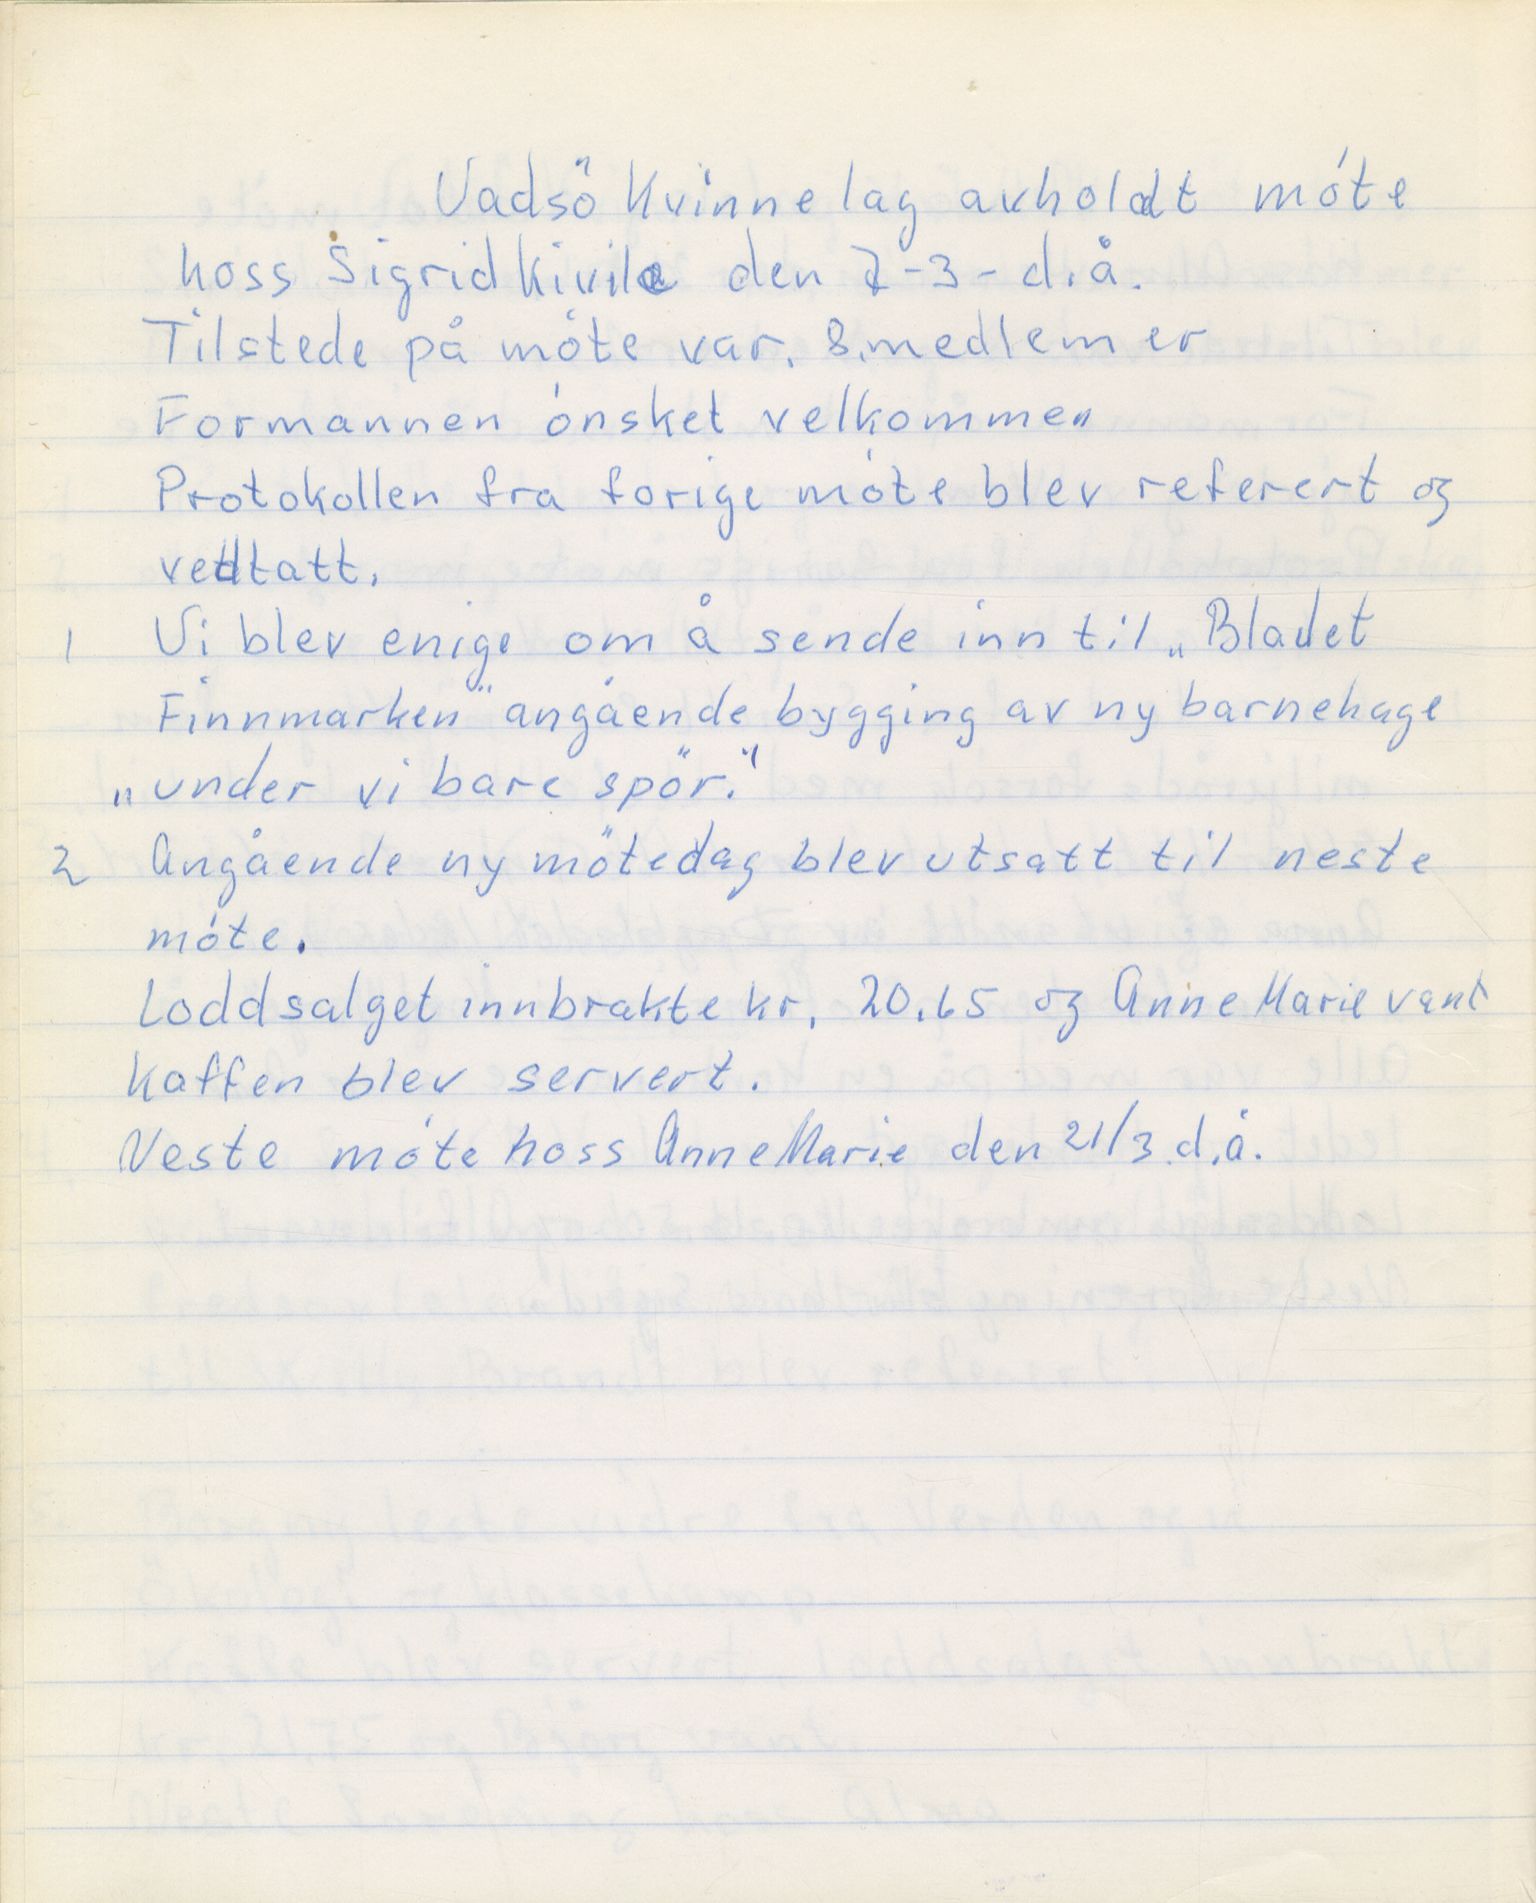 Vadsö Kvinnelag avholdt móte
hoss Sigrid Kivila den 7-3-d.å.
Tilstede på móte var. 8.medlemer
Formannen ónsket velkommen
Protokollen fra forige móte blev referert og
vedtatt.
1 Vi blev enige om å sende inn til „Bladet
Finnmarken" angående bygging av ny barnehage
„under vi bare spör."
2 Angående ny mötedag blev utsatt til neste
móte.
Loddsalget innbrakte kr, 20.65 og Anne Marie vant
Kaffen blev servert.
Neste móte hoss Anne Marie den 21/3.d.å.